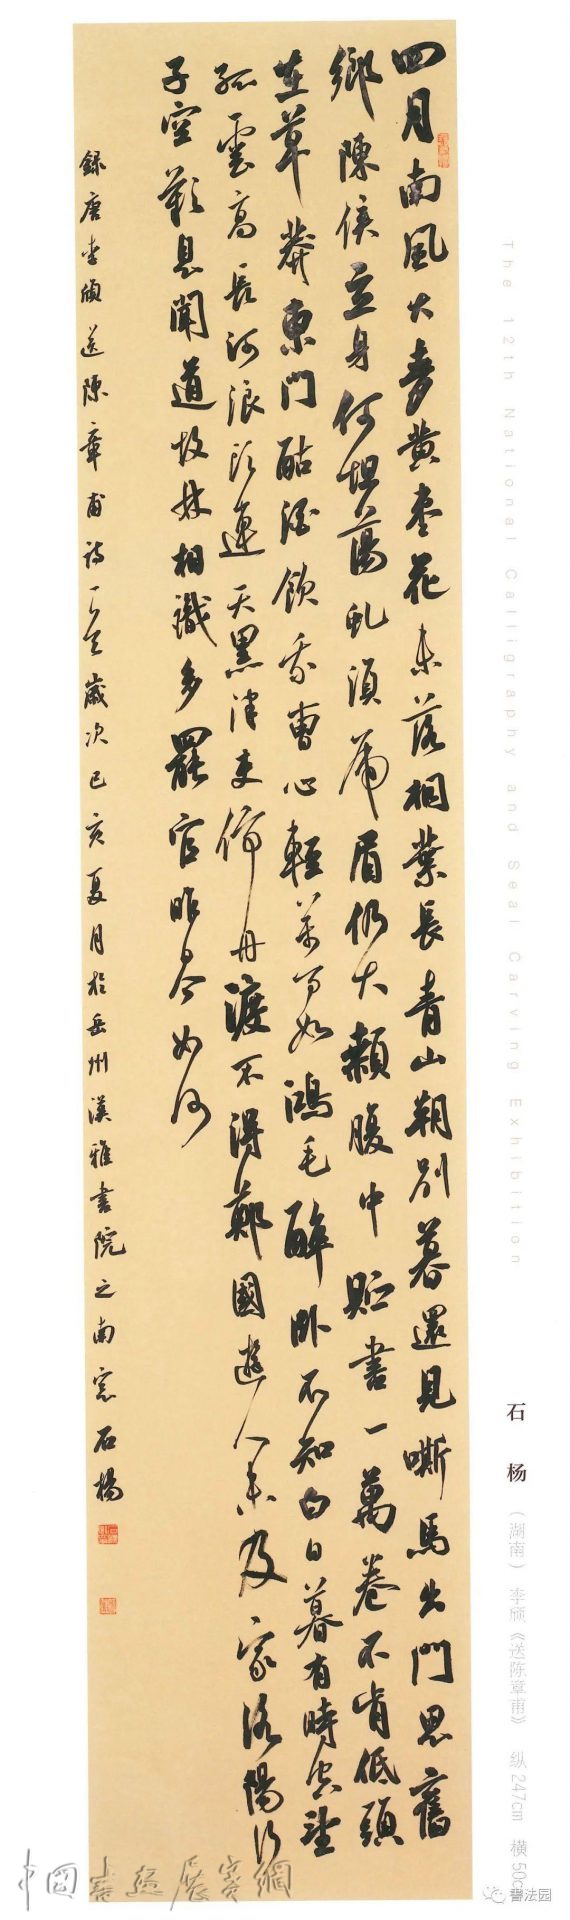 四月南風大麥黄棗花未落桐葉長青山朝別暮還見嘶馬出門思舊
鄉陳侯立身何坦蕩虬須虎眉仍大顙腹中貯書一萬卷不肯低頭
在草莽東門酤酒飲我曹心輕萬事如鴻毛醉卧不知白日暮有時空望
孤雲高長河浪頭連天黑津吏停舟渡不得鄭國遊人未及家洛陽行
子空歎息聞道故林相識多罷官昨今如何
録唐李頎送陳章甫詩一首歲次己亥夏月於岳州漢雅書院之南窗石楊
The 12th National Calligraphy and Seal Carving Exhibition
石 杨 （湖南） 李颀《送陈章甫》 纵247cm 横50c
中國書画展賽網
書法园